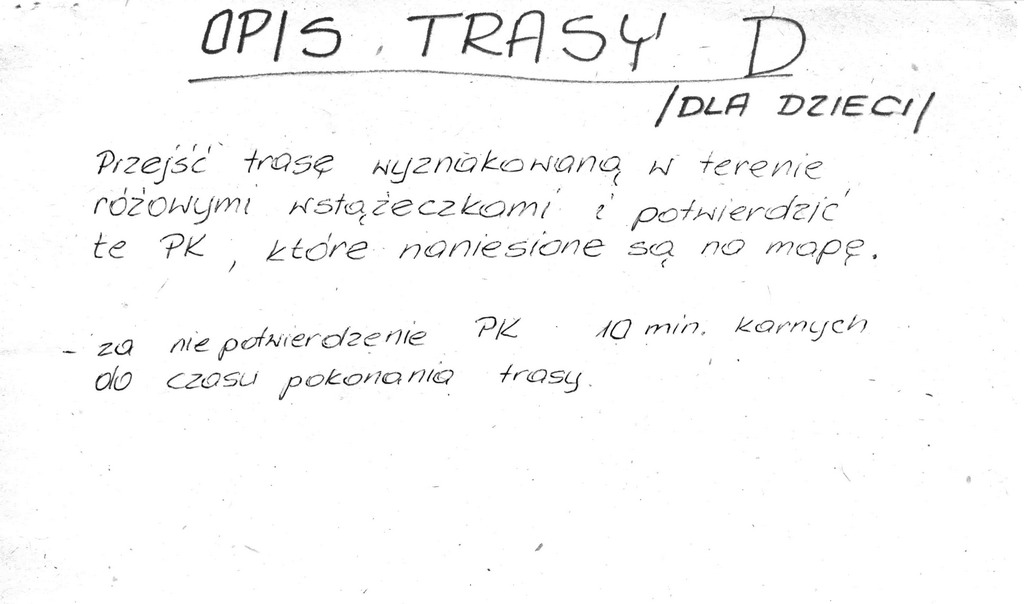 OPIS TRASY D
/DLA DZIECI/
Przejść trasę wyznakowaną w terenie
różowymi wstążeczkami i potwierdzić
te PK, które naniesione są na mapę.
- za niepotwierdzenie PK 10 min. karnych
do czasu pokonania trasy.